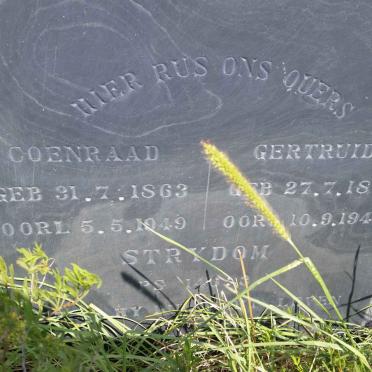 HIER RUS ONS OUERS
COENRAAD GERTRUID
GEB 31.7.1863 GEB 27.7.18
OORL 5.5.1949 OORL 10.9.194
STRYDOM